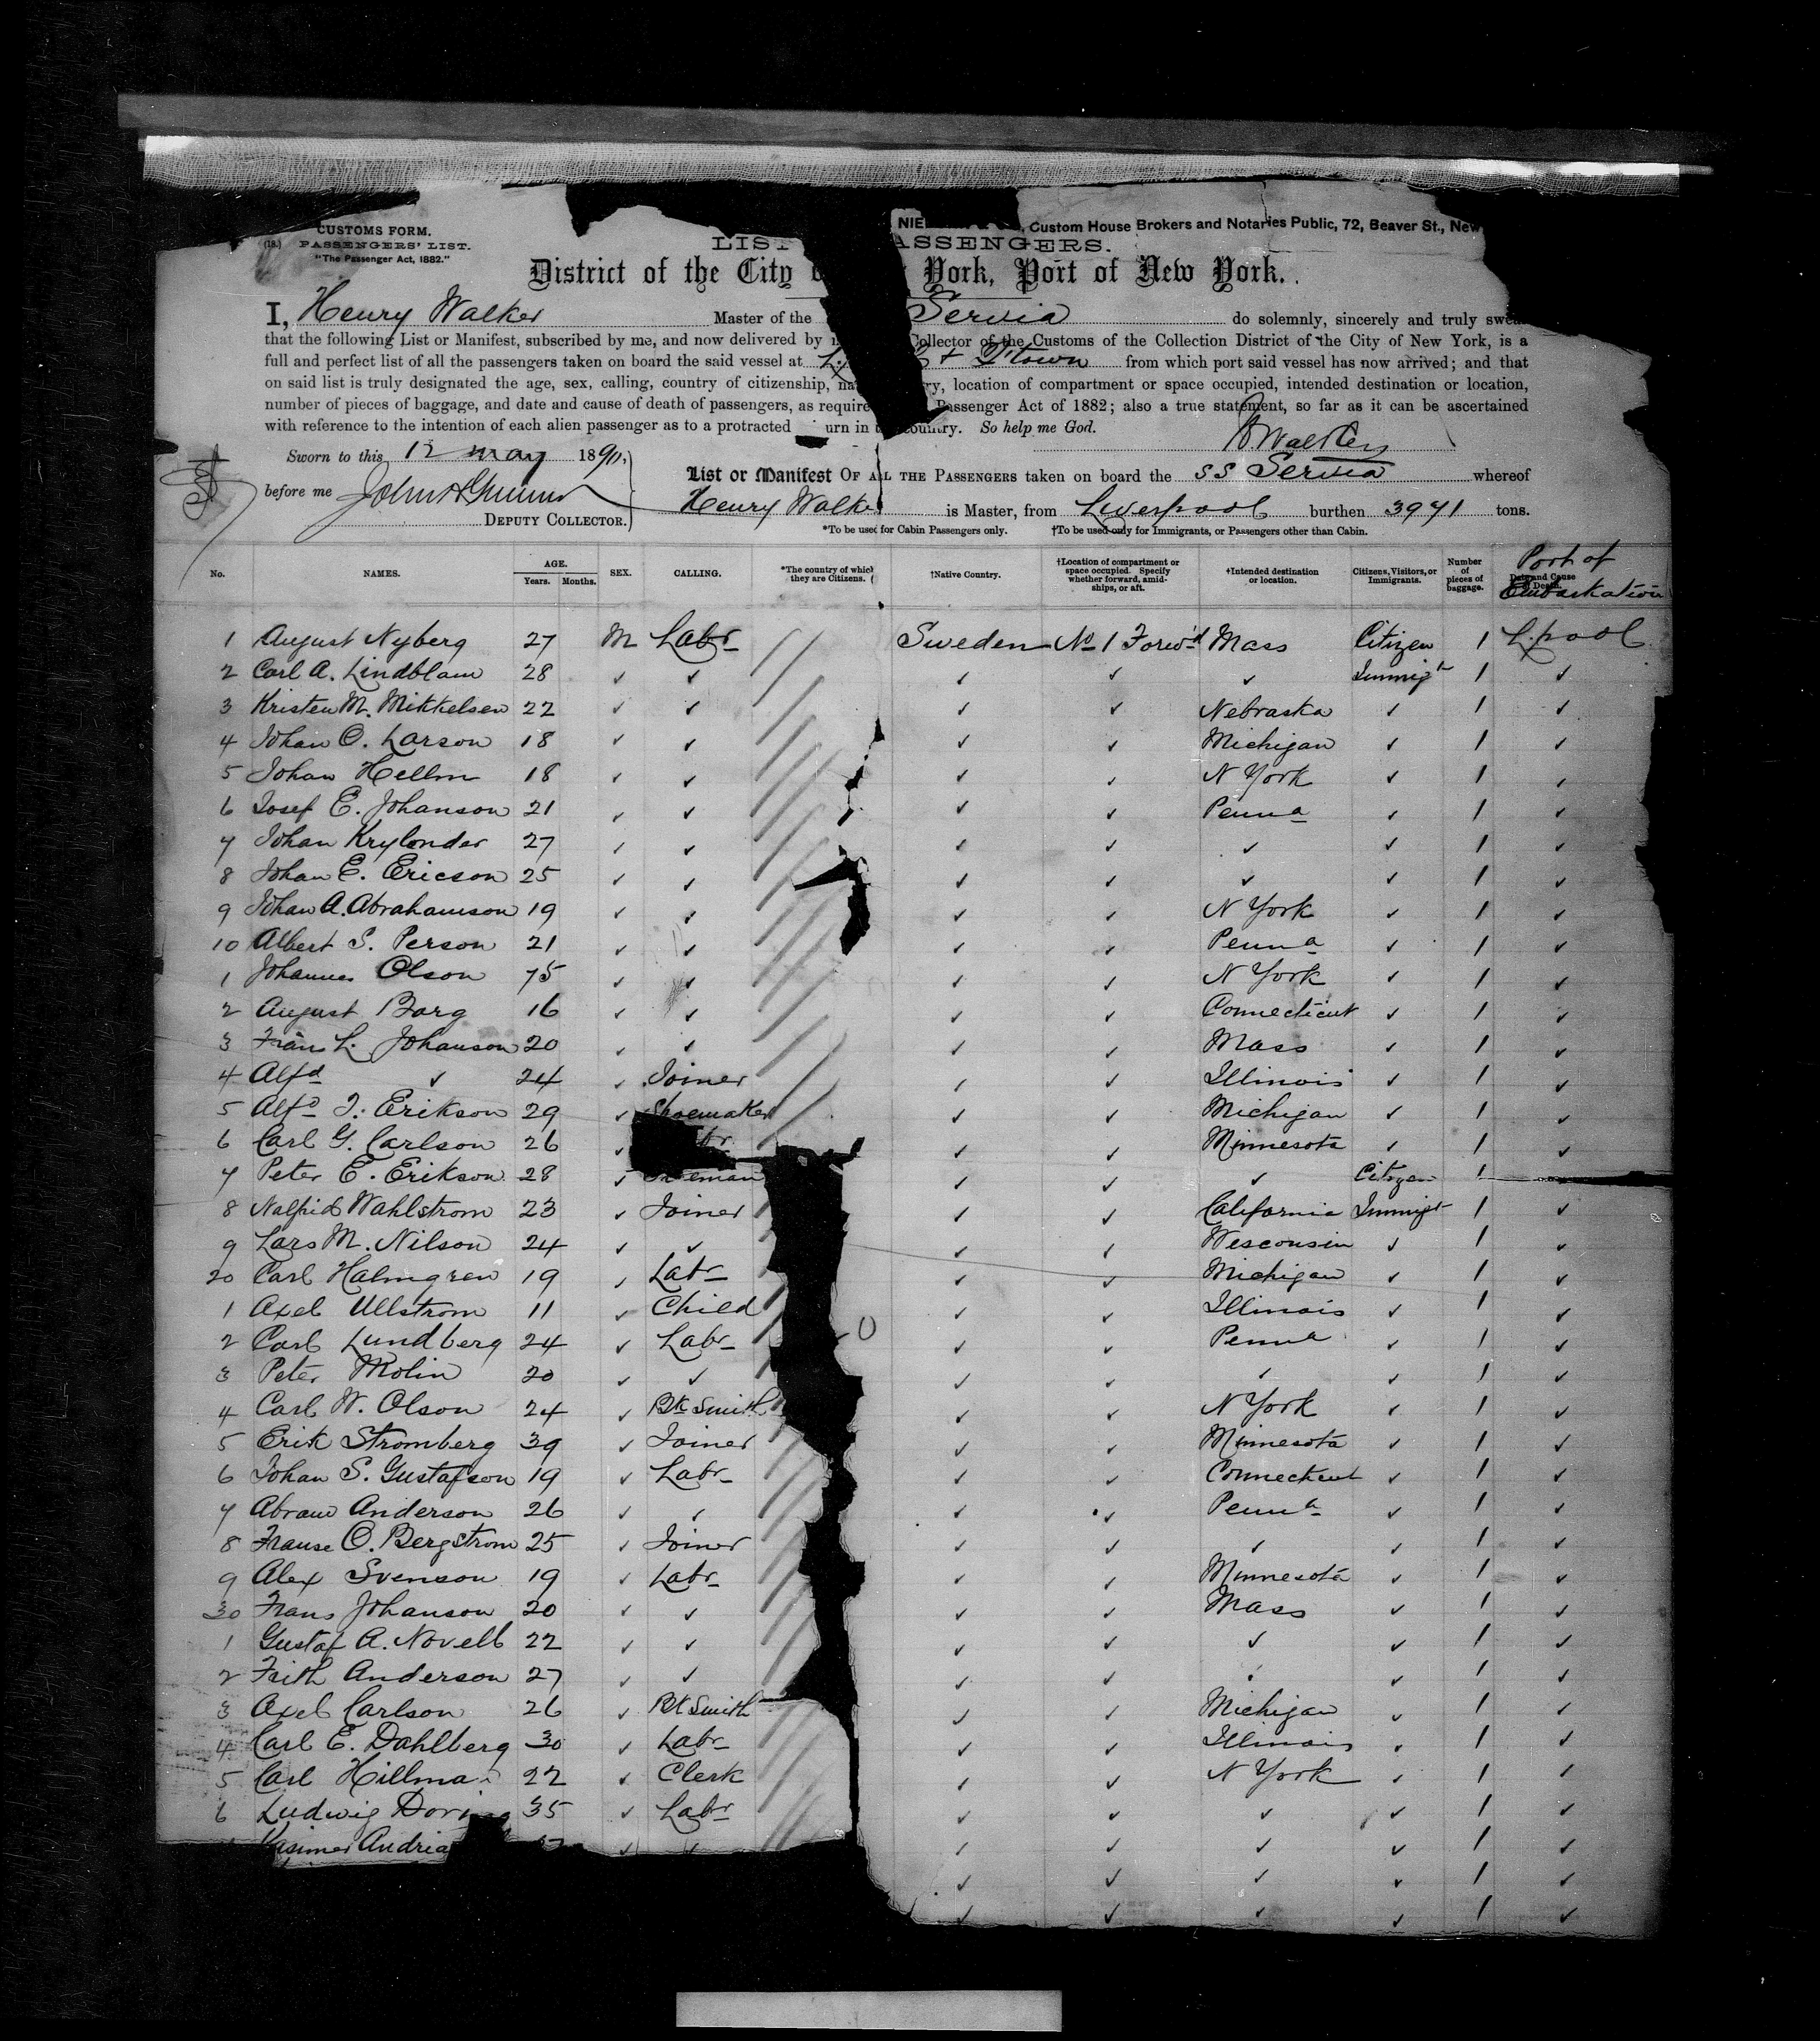 CUSTOMS FORM.
(18.) PASSENGERS' LIST.
"The Passenger Act, 1882."
Custom House Brokers and Notaries Public, 72, Beaver St., New
LIST PASSENGERS.
District of the City York, Port of New York.
I, Henry Walker Master of the Servia do solemnly, sincerely and truly swear
that the following List or Manifest, subscribed by me, and now delivered by Collector of the Customs of the Collection District of the City of New York, is a
full and perfect list of all the passengers taken on board the said vessel at & Q'town from which port said vessel has now arrived; and that
on said list is truly designated the age, sex, calling, country of citizenship, location of compartment or space occupied, intended destination or location,
number of pieces of baggage, and date and cause of death of passengers, as require Passenger Act of 1882; also a true statement, so far as it can be ascertained
with reference to the intention of each alien passenger as to a protracted urn in country. So help me God.
H Walker
Sworn to this 12 May 1890,
List or Manifest OF ALL THE PASSENGERS taken on board the SS Servia whereof
before me
Henry Walker is Master, from Liverpool burthen 3971 tons.
DEPUTY COLLECTOR.
*To be used for Cabin Passengers only. †To be used only for Immigrants, or Passengers other than Cabin.
No. NAMES. AGE. Years. Months. SEX. CALLING. *The country of which they are Citizens. †Native Country. †Location of compartment or space occupied. Specify whether forward, amidships, or aft. †Intended destination or location. Citizens, Visitors, or Immigrants. Number of pieces of baggage. Date and Cause of Death. Port of Embarkation
1 August Nyberg 27 M Labr Sweden No 1 Forwd Mass Citizen 1 L.pool
2 Carl A. Lindblam 28 ✓ ✓ ✓ ✓ ✓ Immigt 1 ✓
3 Kristen M. Mikkelsen 22 ✓ ✓ ✓ ✓ Nebraska ✓ 1 ✓
4 Johan O. Larson 18 ✓ ✓ ✓ ✓ Michigan ✓ 1 ✓
5 Johan Hellm 18 ✓ ✓ ✓ ✓ N York ✓ 1 ✓
6 Josef E. Johanson 21 ✓ ✓ ✓ ✓ Penna ✓ 1 ✓
7 Johan Krylonder 27 ✓ ✓ ✓ ✓ ✓ ✓ 1 ✓
8 Johan E. Ericson 25 ✓ ✓ ✓ ✓ ✓ ✓ 1 ✓
9 Johan A. Abrahamson 19 ✓ ✓ ✓ ✓ N York ✓ 1 ✓
10 Albert S. Person 21 ✓ ✓ ✓ ✓ Penna ✓ 1 ✓
1 Johannes Olson 75 ✓ ✓ ✓ ✓ N York ✓ 1 ✓
2 August Borg 16 ✓ ✓ ✓ ✓ Connecticut ✓ 1 ✓
3 Frans L. Johanson 20 ✓ ✓ ✓ ✓ Mass ✓ 1 ✓
4 Alfd ✓ 24 ✓ Joiner ✓ ✓ Illinois ✓ 1 ✓
5 Alfd J. Erikson 29 ✓ Shoemaker ✓ ✓ Michigan ✓ 1 ✓
6 Carl G. Carlson 26 ✓ ✓ ✓ Minnesota ✓ 1 ✓
7 Peter E. Erikson 28 ✓ ✓ ✓ ✓ Citizen 1
8 Nalfrid Wahlstrom 23 ✓ Joiner ✓ ✓ California Immigt 1 ✓
9 Lars M. Nilson 24 ✓ ✓ ✓ ✓ Wesconsin ✓ 1 ✓
20 Carl Halmgren 19 ✓ Labr ✓ ✓ Michigan ✓ 1 ✓
1 Axel Ullstrom 11 ✓ Child ✓ ✓ Illinois ✓ 1 ✓
2 Carl Lundberg 24 ✓ Labr ✓ ✓ Penna ✓ 1 ✓
3 Peter Molin 20 ✓ ✓ ✓ ✓ ✓ ✓ 1 ✓
4 Carl W. Olson 24 ✓ Bk Smith ✓ ✓ N York ✓ 1 ✓
5 Erik Stromberg 39 ✓ Joiner ✓ ✓ Minnesota ✓ 1 ✓
6 Johan S. Gustafson 19 ✓ Labr ✓ ✓ Connecticut ✓ 1 ✓
7 Abram Anderson 26 ✓ ✓ ✓ ✓ Penna ✓ 1 ✓
8 Franse O. Bergstrom 25 ✓ Joiner ✓ ✓ ✓ ✓ 1 ✓
9 Alex Svenson 19 ✓ Labr ✓ ✓ Minnesota ✓ 1 ✓
30 Frans Johanson 20 ✓ ✓ ✓ ✓ Mass ✓ 1 ✓
1 Gustaf A. Novell 22 ✓ ✓ ✓ ✓ ✓ ✓ 1 ✓
2 Frith Anderson 27 ✓ ✓ ✓ ✓ ✓ ✓ 1 ✓
3 Axel Carlson 26 ✓ Bk Smith ✓ ✓ Michigan ✓ 1 ✓
4 Carl E. Dahlberg 30 ✓ Labr ✓ ✓ Illinois ✓ 1 ✓
5 Carl Hillma 22 ✓ Clerk ✓ ✓ N York ✓ 1 ✓
6 Ludwig Doring 35 ✓ Labr ✓ ✓ ✓ ✓ 1 ✓
Kasimer Andria ✓ ✓ ✓ ✓ ✓ ✓ 1 ✓
✓ ✓ ✓ ✓ 1 ✓
✓ ✓ ✓ ✓ 1 ✓